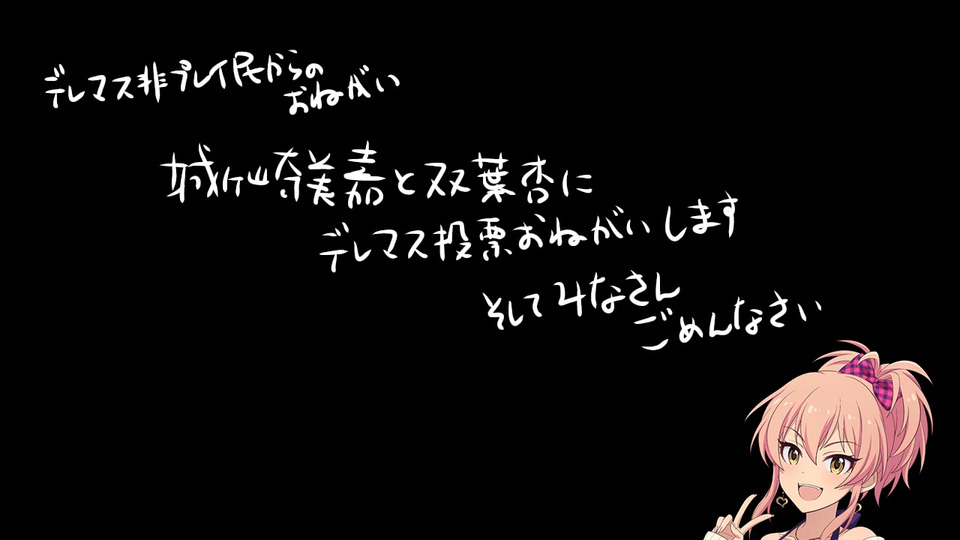 デレマス非プレイ民からの
おねがい
城ヶ崎美嘉と双葉杏に
デレマス投票おねがいします
そしてみなさん
ごめんなさい